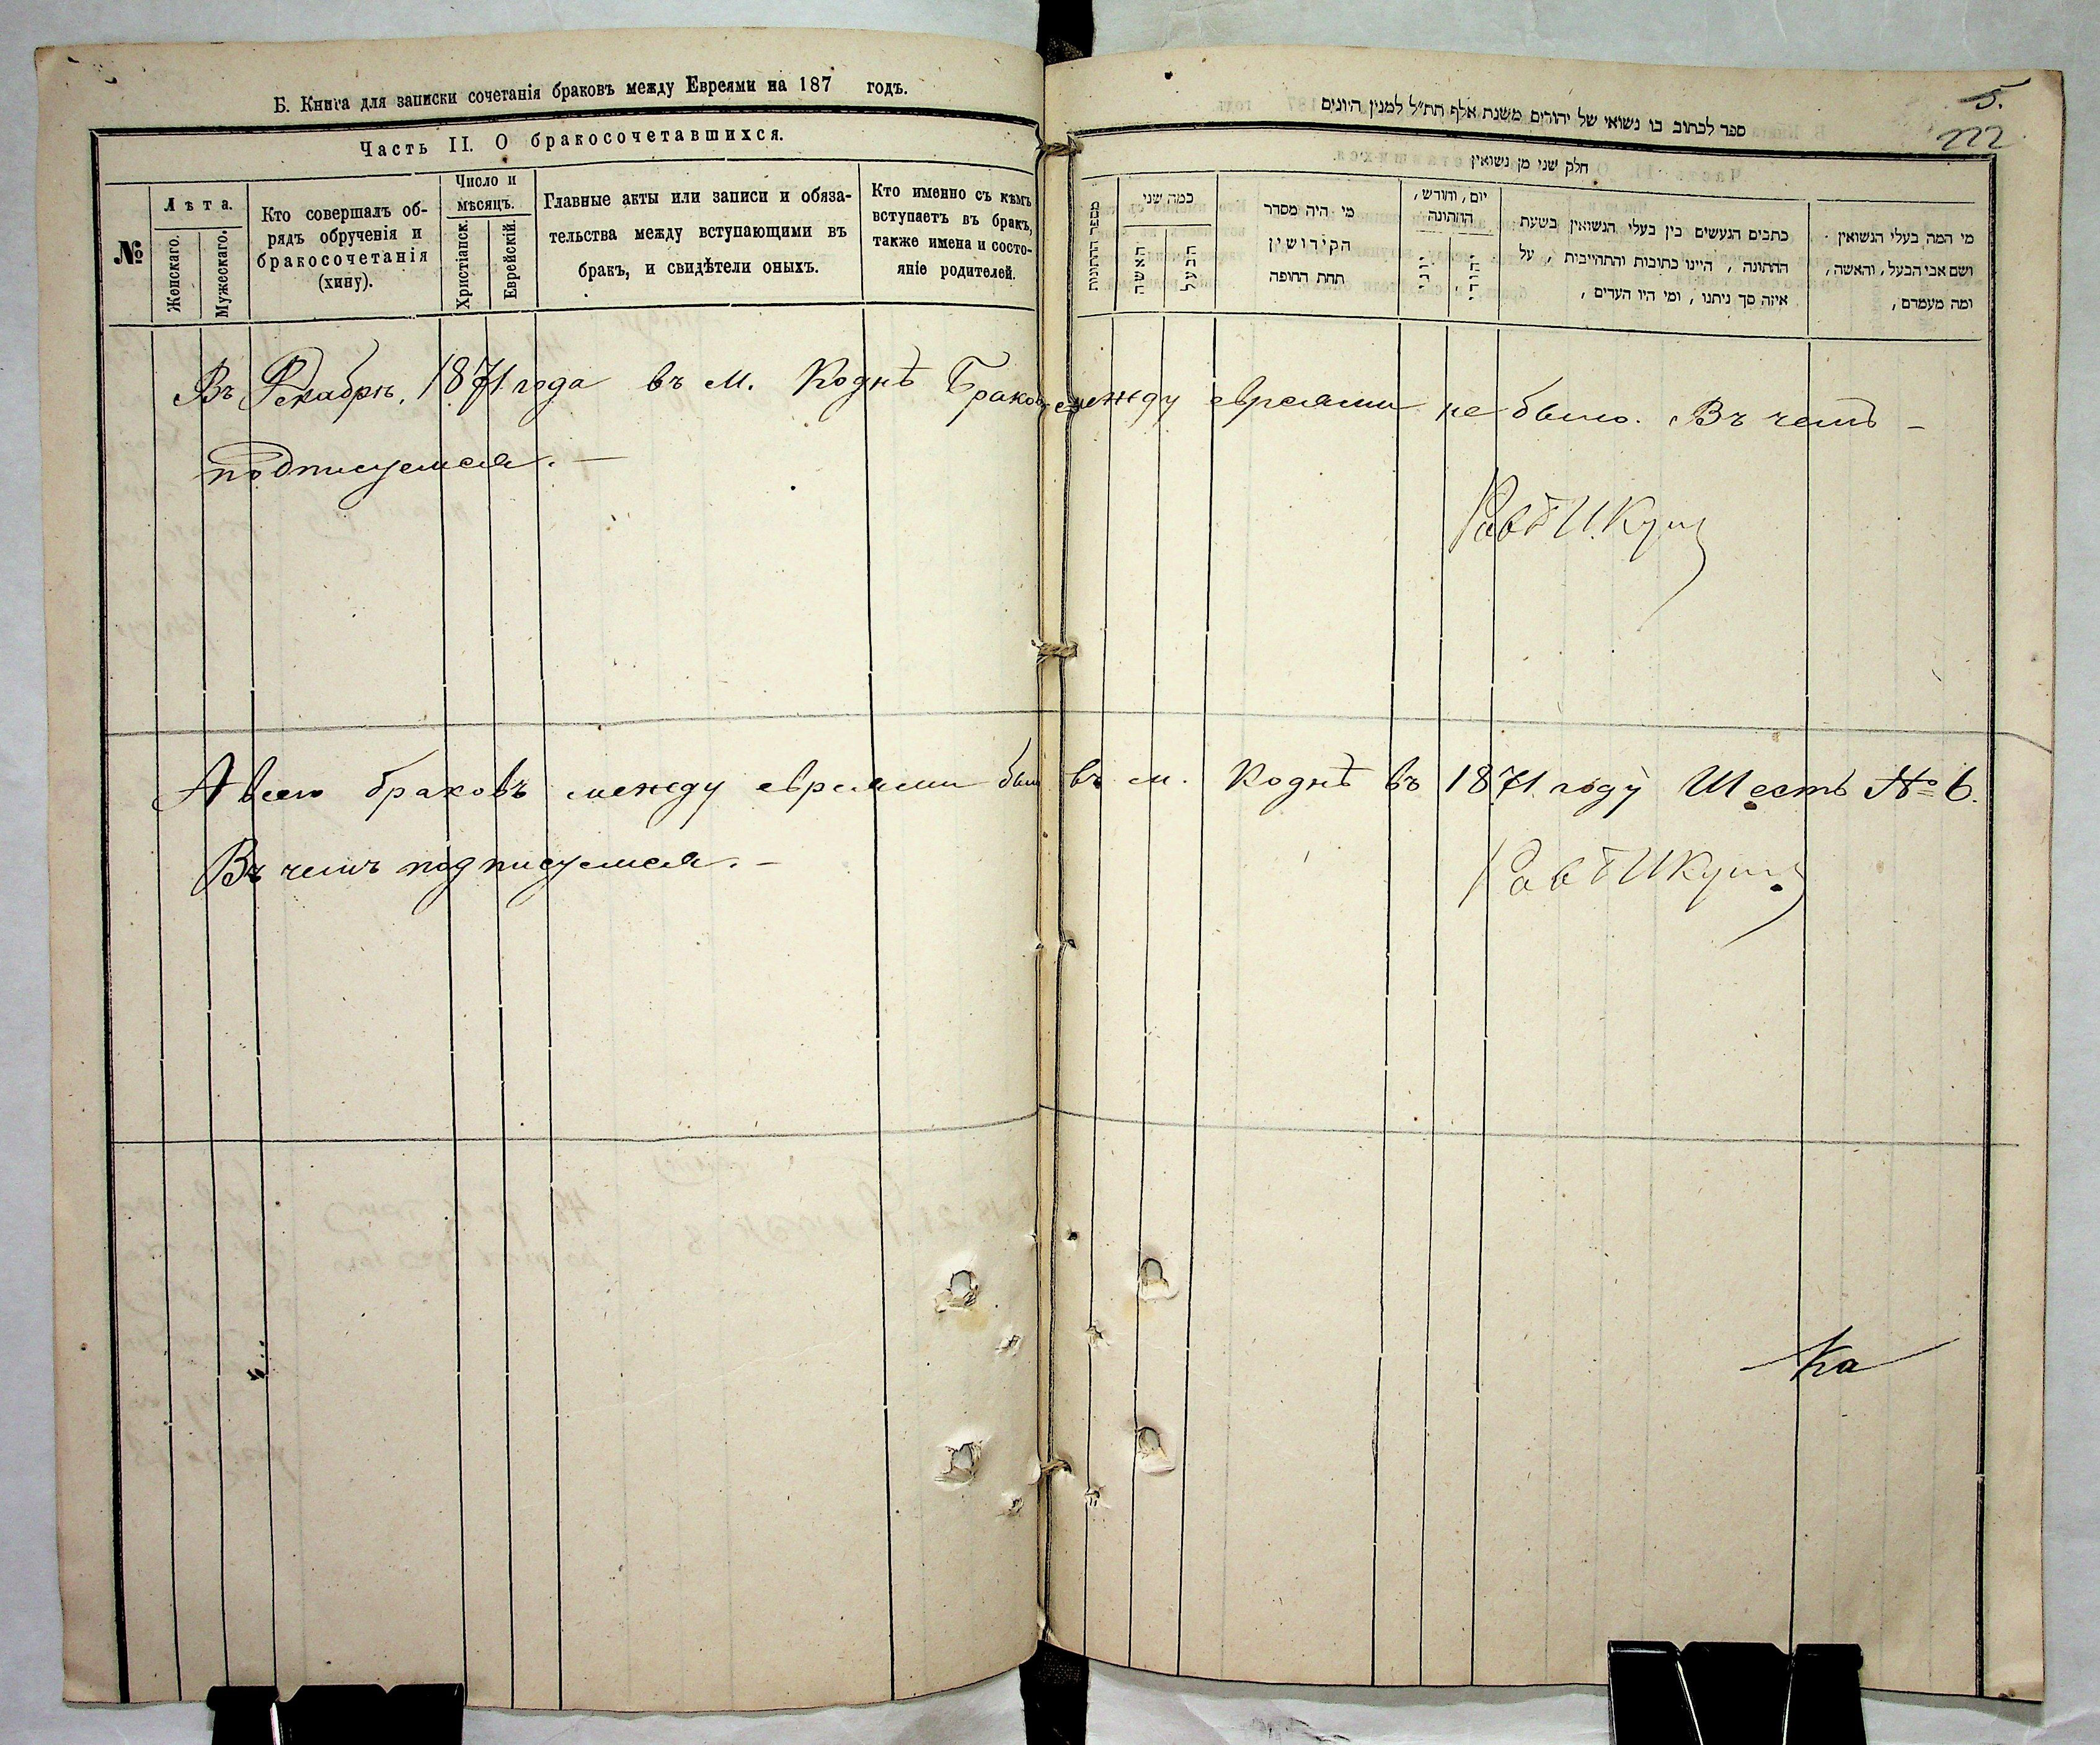 Б. Книга для записки сочетанія браковъ между Евреями на 187 годъ.
Часть II. О бракосочетавшихся.
№
Лѣта.
Женскаго.
Мужескаго.
Кто совершалъ об-
рядъ обрученія и
бракосочетанія
(хипу).
Число и
мѣсяцъ.
Христіанск.
Еврейскій.
Главные акты или записи и обяза-
тельства между вступающими въ
бракъ, и свидѣтели оныхъ.
Кто именно съ кѣмъ
вступаетъ въ бракъ,
также имена и состо-
яніе родителей.
5.
ספר לכתוב בו נשואי של יהודים משנת אלף תת״ל למנין היונים
חלק שני מן נשואין
מספר החתונות
כמה שני
האשה
הבעל
מי היה מסדר
הקידושין
תחת החופה
יום, וחודש,
החתונה
יוני
יהודי
כתבים הנעשים בין בעלי הנשואין בשעת
החתונה, היינו כתובות והתחייבות, על
איזה סך ניתנו, ומי היו העדים,
מי המה בעלי הנשואין
ושם אבי הבעל, והאשה,
ומה מעמדם,
Въ Декабрѣ, 1871 года въ м. Коднѣ Браковъ между евреями не было. Въ чемъ –
подписуемся. –
И.
А всего браковъ между евреями было въ м. Коднѣ въ 1871 году Шесть № 6.
Въ чемъ подписуемся. –
И
Ка